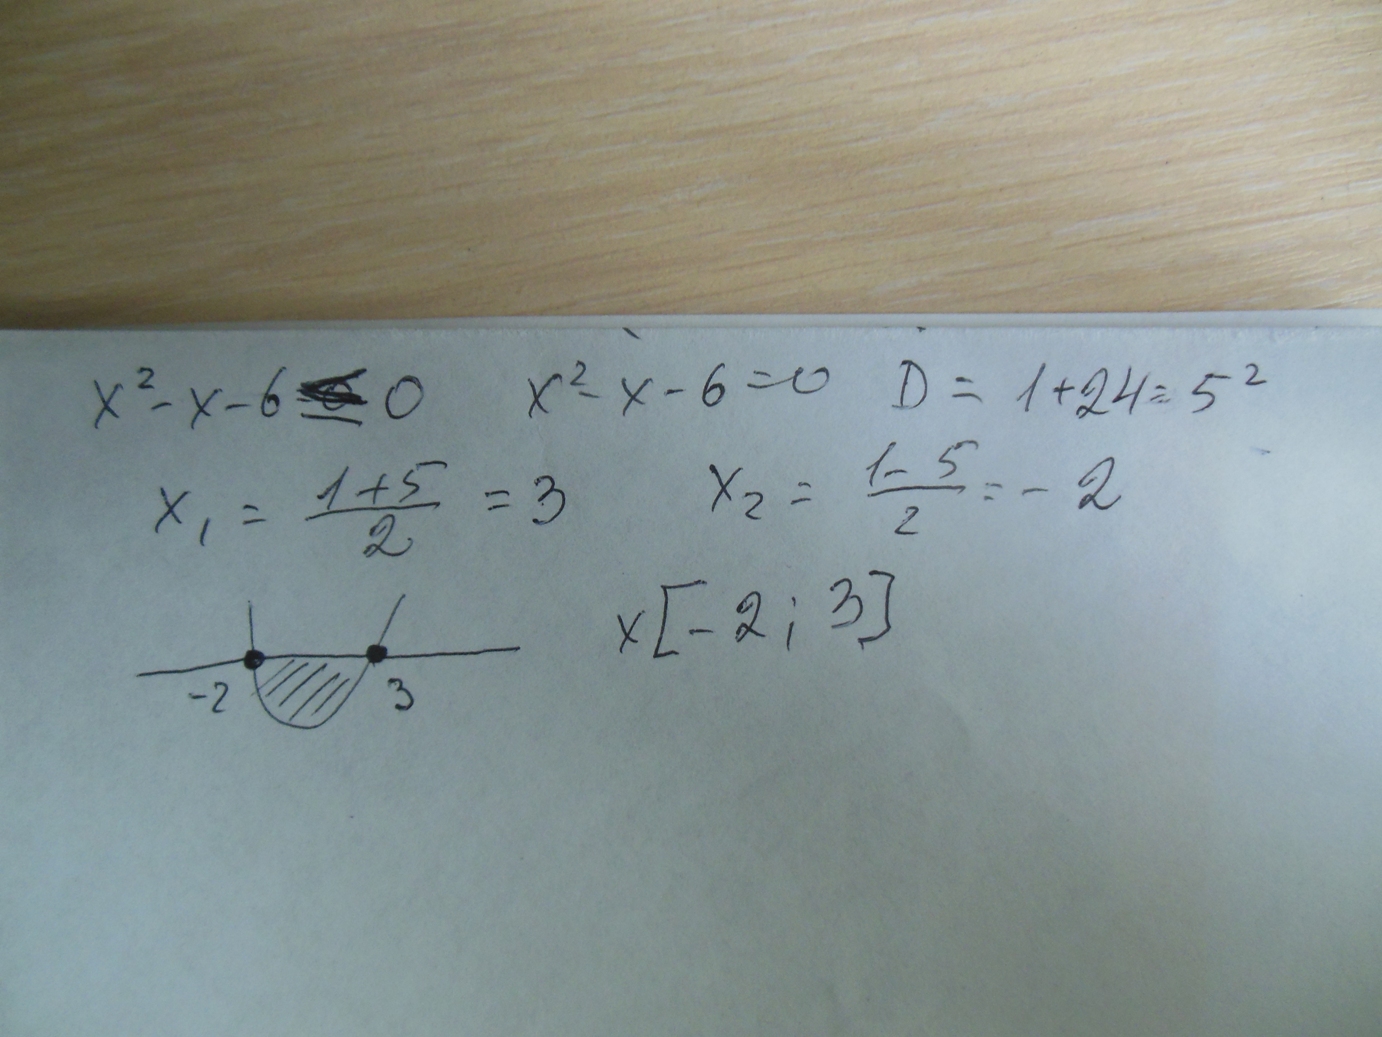 x² - x - 6 ≤ 0 x² - x - 6 = 0 D = 1+24 = 5²
x₁ = (1+5)/2 = 3 x₂ = (1-5)/2 = -2
x[-2; 3]
-2 3